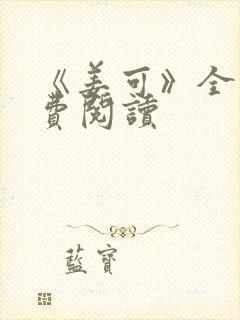 《姜可》全
費閱讀
藍寶